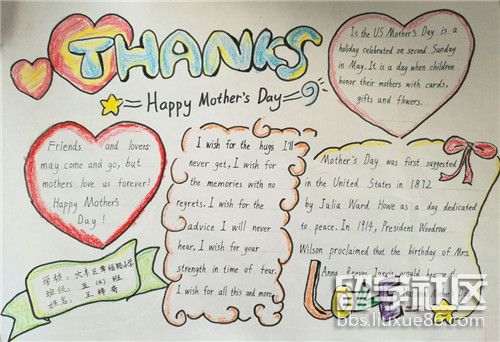 THANKS
Happy Mother's Day
In the US Mother's Day is a
holiday celebrated on second Sunday
in May. It is a day when children
honor their mothers with cards,
gifts and flowers.
Friends and lovers
may come and go, but
mothers love us forever!
Happy Mother's
Day!
I wish for the hugs I'll
never get, I wish for
the memories with no
regrets. I wish for the
advice I will never
hear, I wish for your
strength in time of fear.
I wish for all this and more
Mother's Day was first suggested
in the United States in 1872
by Julia Ward Howe as a day dedicated
to peace. In 1914, President Woodrow
Wilson proclaimed that the birthday of Mrs.
Anna Reeves Jarvis would become
学校:
班级: 五(4)班
姓名: 王
留学社区
bbs.liuxue86.com